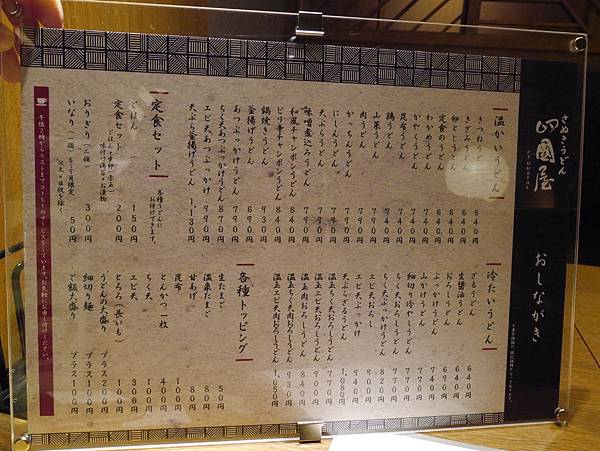 さぬきうどん
四國屋
おしながき
温かいうどん
きつねうどん 640円
きざみうどん 640円
卵とじうどん 640円
定食のうどん 640円
わかめうどん 740円
かやくうどん 740円
昆布うどん 740円
山菜うどん
鶏うどん
肉うどん 790円
かつちんうどん
にしんうどん
天ぷらうどん
味噌煮込みうどん
和風チャンポンうどん 840円
ピリ辛チャンポンうどん 840円
鍋焼きうどん 930円
釜揚げうどん 690円
あつぶっかけうどん 790円
ちく天あつぶっかけうどん 890円
エビ天あつぶっかけ 990円
天ぷら釜揚げうどん 1,130円
定食セット
各種うどんに
お付けできます。
ごはん 150円
定食セット 200円
おにぎり(二個) 300円
いなり(一個) 50円
※土・日祝を除く
冷たいうどん
ざるうどん 640円
生醤油うどん 640円
おろしうどん 690円
ぶっかけうどん 690円
山かけうどん 740円
細切り冷やしうどん 770円
ちく天おろしうどん 770円
ちく天ぶっかけうどん 820円
エビ天おろし
エビ天ぶっかけ
天ぷらざるうどん 1,080円
温玉ちく天おろしうどん
温玉エビ天おろしうどん 970円
温玉肉おろしうどん 840円
温玉ちく天肉おろしうどん 930円
温玉エビ天肉おろしうどん 1,080円
各種トッピング
生たまご 50円
温泉たまご 80円
甘あげ 80円
昆布 100円
とんかつ一枚 400円
ちく天 100円
エビ天 300円
とろろ(長いも) 100円
うどんの大盛り プラス200円
細切り麺 プラス100円
ご飯大盛り プラス100円
午後2時からラストまでコーヒーのサービスをしています。お気軽にお申し付けください。